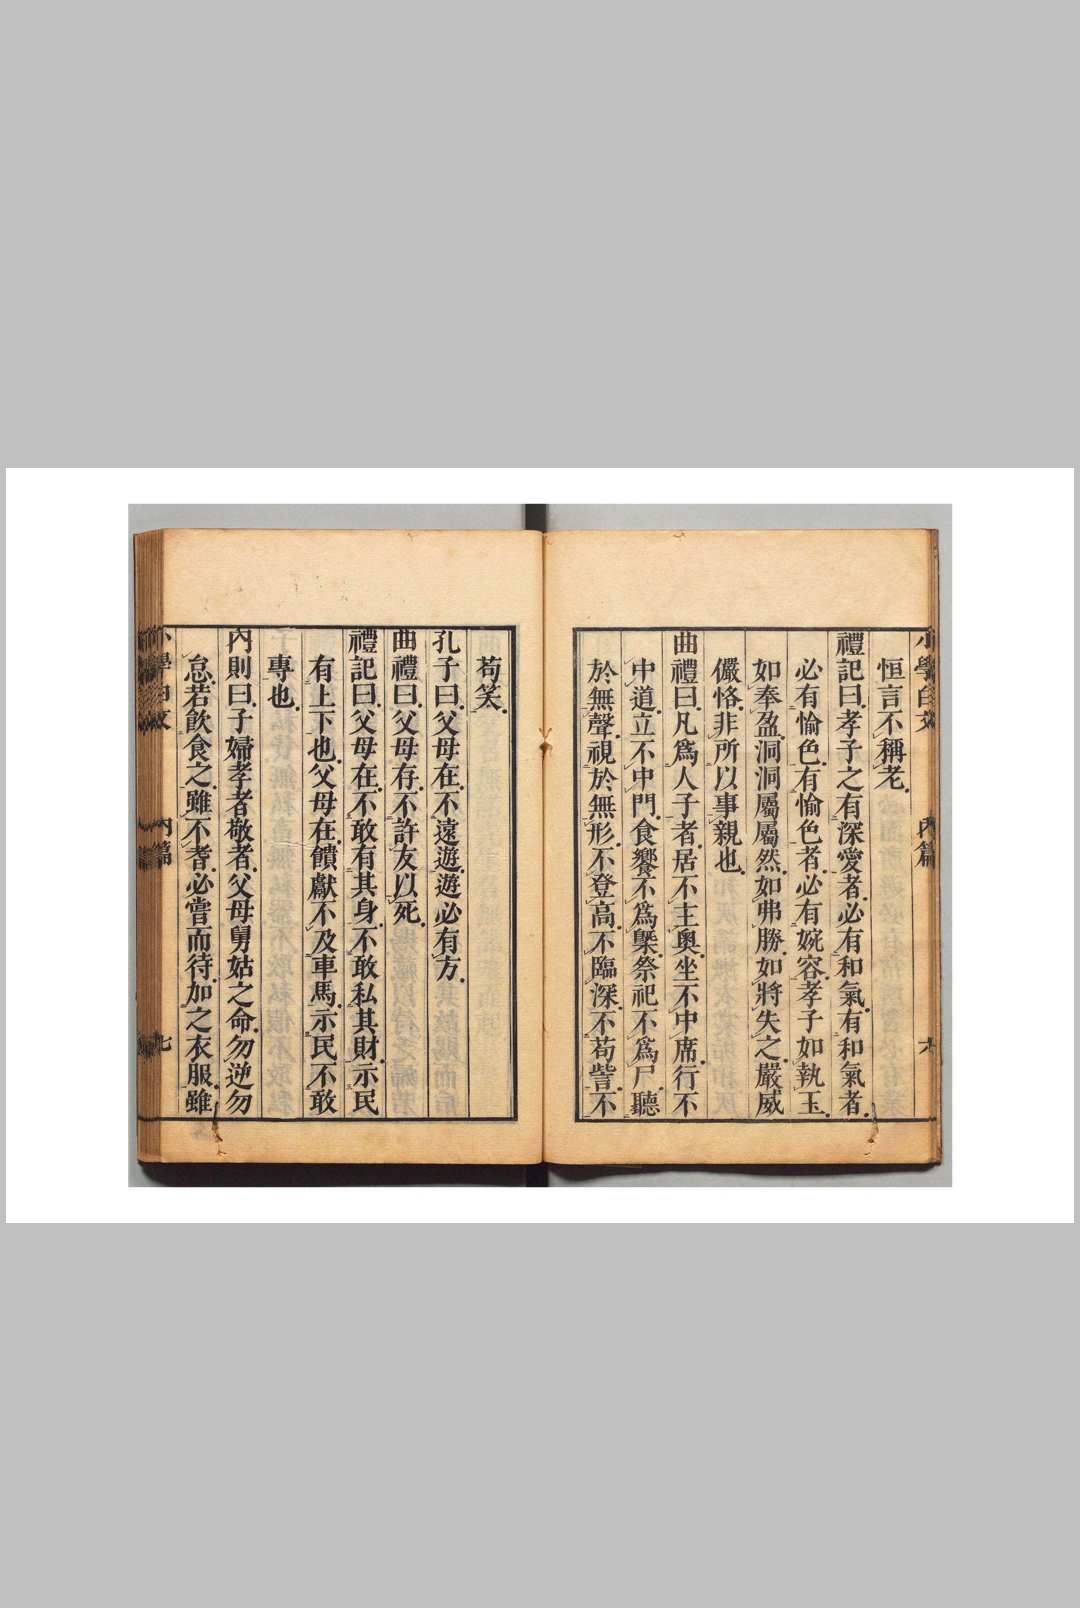 小學白文 內篇 六
恒言不稱老
禮記曰孝子之有深愛者必有和氣有和氣者
必有愉色有愉色者必有婉容孝子如執玉
如奉盈洞洞屬屬然如弗勝如將失之嚴威
儼恪非所以事親也
曲禮曰凡爲人子者居不主奧坐不中席行不
中道立不中門食饗不爲槩祭祀不爲尸聽
於無聲視於無形不登高不臨深不苟訾不
苟笑
孔子曰父母在不遠遊遊必有方
曲禮曰父母存不許友以死
禮記曰父母在不敢有其身不敢私其財示民
有上下也父母在饋獻不及車馬示民不敢
專也
內則曰子婦孝者敬者父母舅姑之命勿逆勿
怠若飲食之雖不耆必嘗而待加之衣服雖
小學白文 內篇 七